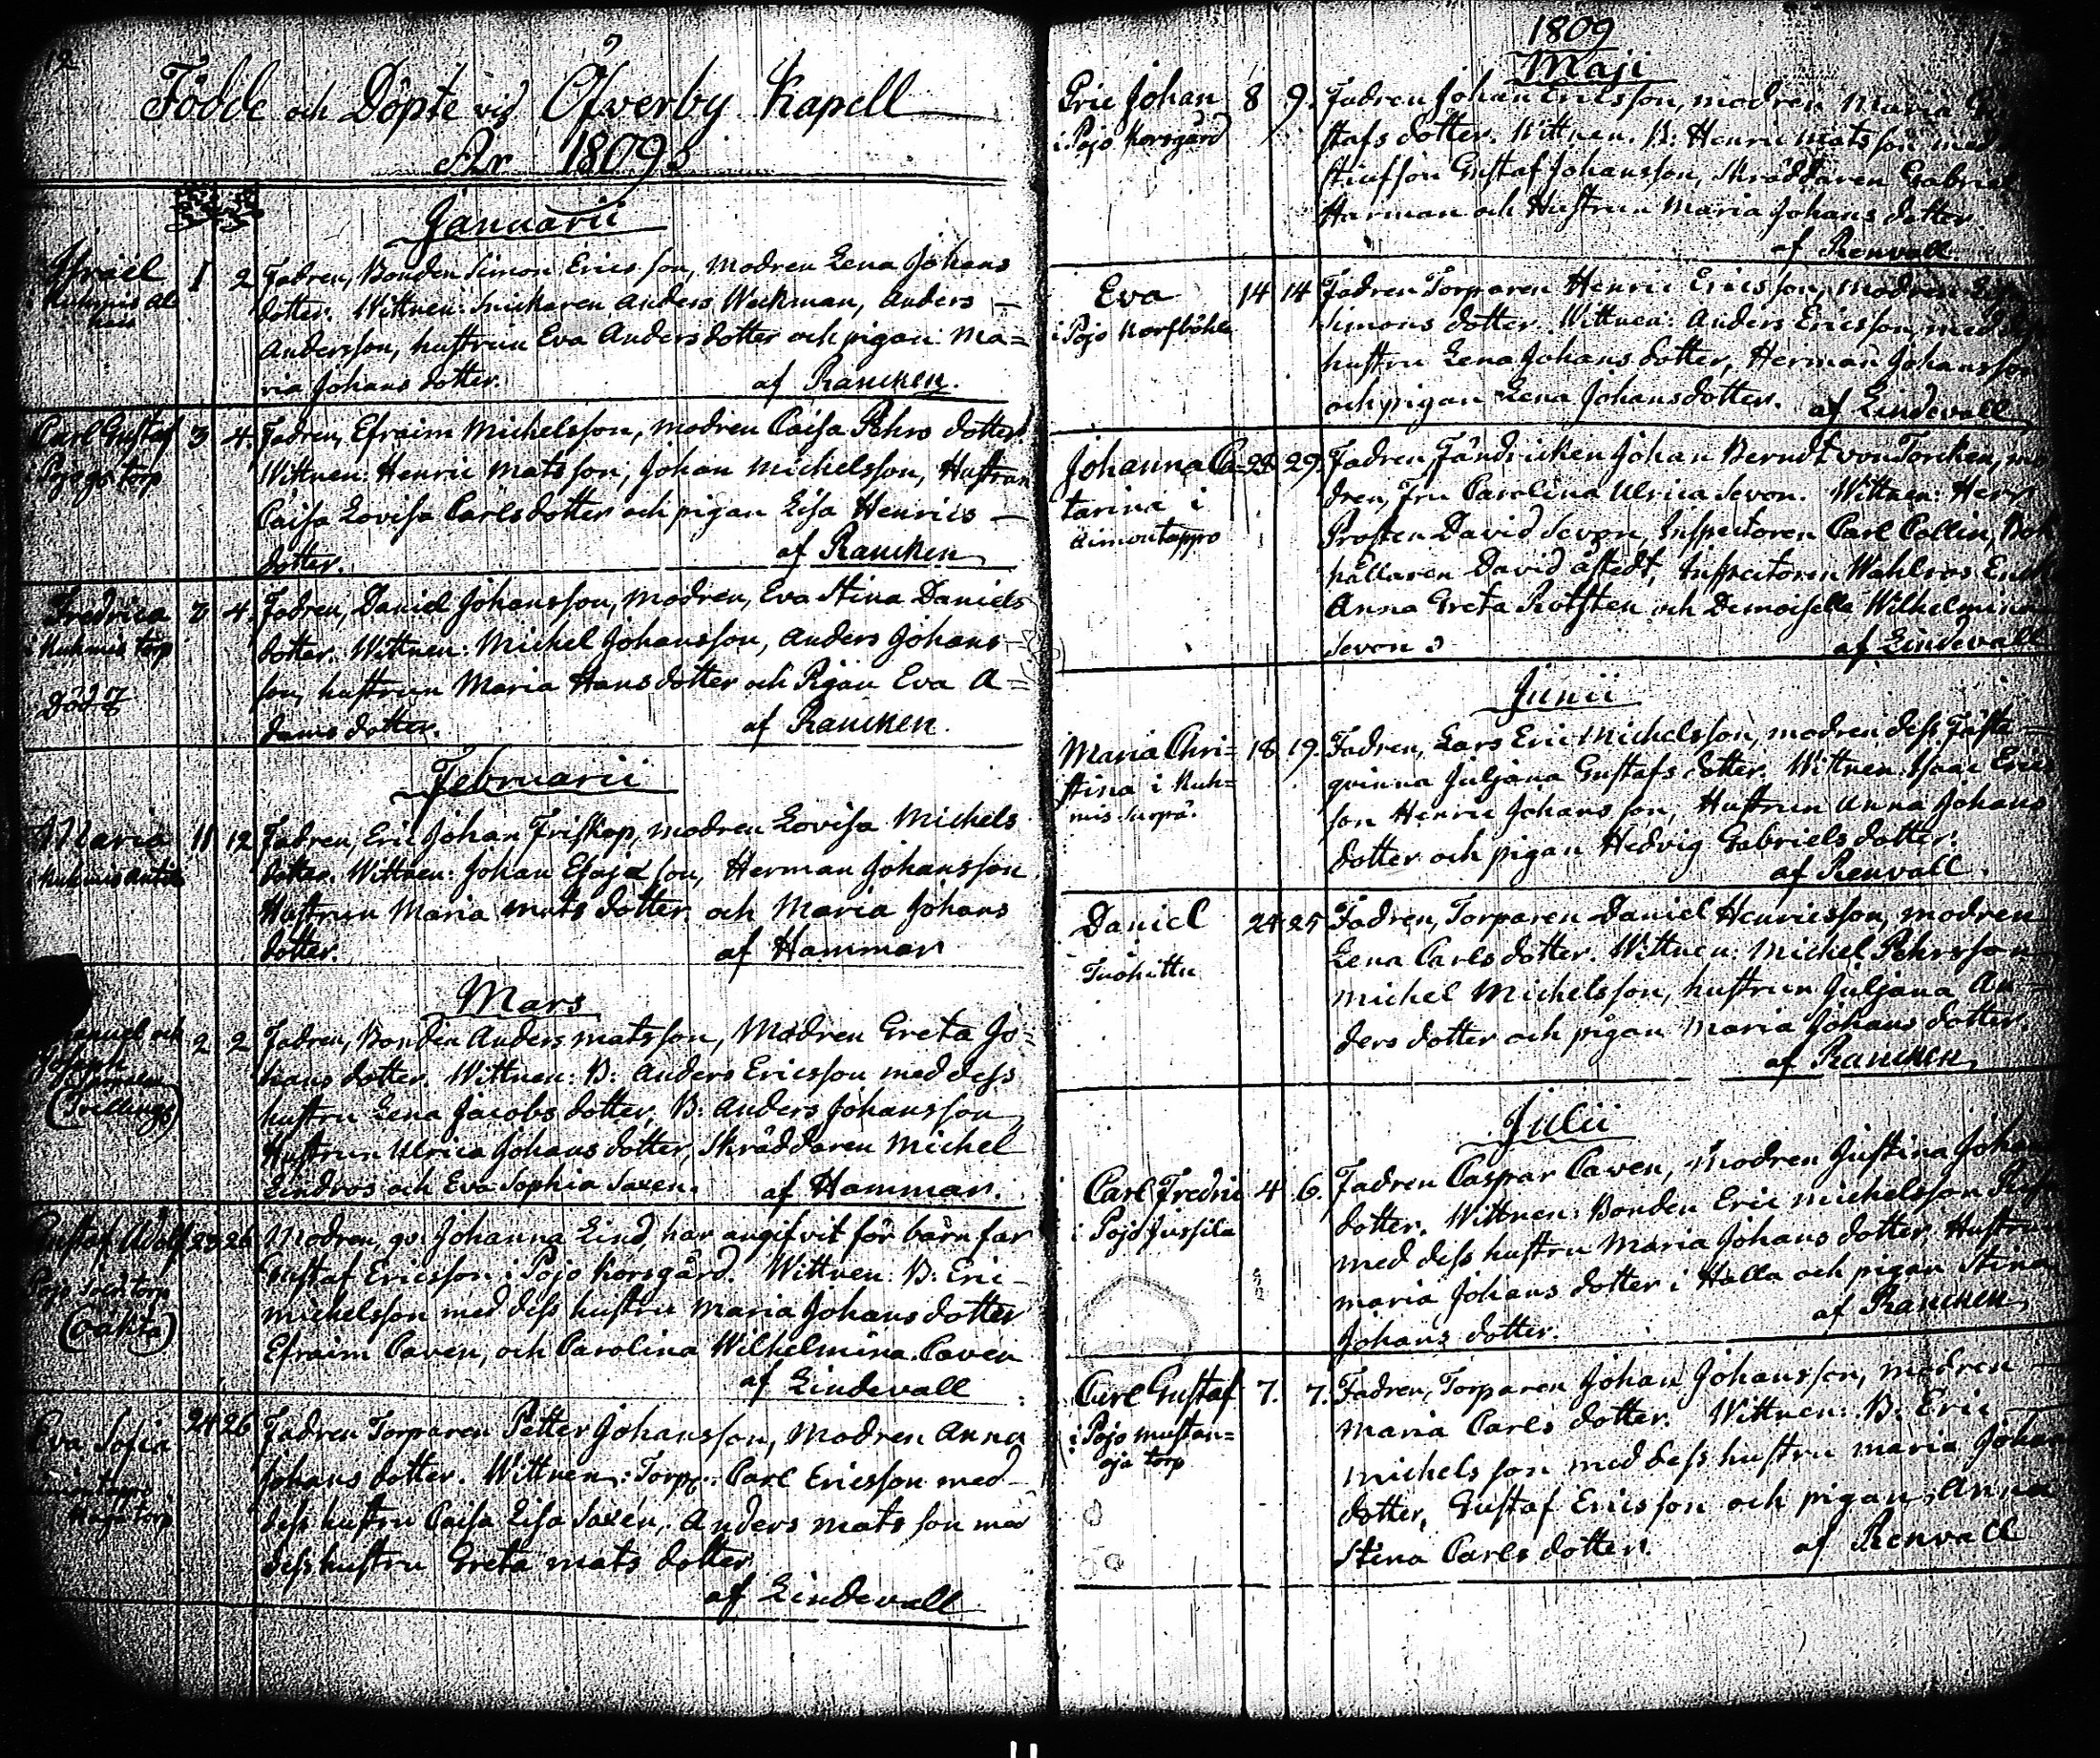 12
Födde och Döpte vid Öfverby Kapell
År 1809
Januarii
Israël
1 2 Fadren, Bonden Simon Ericsson, Modren Lena Johans
Kuhmis
dotter. Wittnen: Snickaren Anders Weckman, Anders
Andersson, hustrun Eva Andersdotter och pigan: Ma=
ria Johans dotter. af Rancken.
Carl Gustaf 3 4. Fadren, Efraim Michelsson, modren Caisa Pehrs dotter.
i Pojo torp
Wittnen: Henric Matsson, Johan Michelsson, Hustrun
Caisa Lovisa Carlsdotter och pigan Lisa Henrics
dotter. af Rancken
Fredrica 3 4. Fadren, Daniel Johansson, Modren, Eva Stina Daniels
i Kuhmis torp
dotter. Wittnen: Michel Johansson, Anders Johans=
son, hustrun Maria Hansdotter och Pigan Eva A=
död
dams dotter. af Rancken.
Februarii
Maria 11 12 Fadren, Eric Johan Friskop, modren Lovisa Michels
i Kuhmis
dotter. Wittnen: Johan Esajæson, Herman Johansson
Hustrun Maria Mats dotter och Maria Johans
dotter. af Hammar
Mars
och
2 2 Fadren, Bonden Anders Matsson, Modren Greta Jo=
hans dotter. Wittnen: B: Anders Ericsson med dess
(Tvillings)
hustru Lena Jacobs dotter, B: Anders Johansson,
Hustrun Ulrica Johans dotter, Skräddaren Michel
Lindros och Eva Sophia Saxen. af Hammar.
Gustaf Adolf 23 26 Modren, Johanna Lind, har angifvit för barnfar
Gustaf Ericsson i Pojo Korsgård. Wittnen: B: Eric
Pojo torp
(oäkta)
Michelsson med dess hustru Maria Johans dotter
Efraim Caven, och Carolina Wilhelmina Caven
af Lindevall
Eva Sofia 24 26 Fadren Torparen Petter Johansson, Modren Anna
Johans dotter. Wittnen: Torp: Carl Ericsson med
torp
dess hustru Caisa Lisa Saxén, Anders Matsson med
dess hustru Greta Mats dotter
af Lindevall
1809
Maji
Eric Johan 8 9. Fadren Johan Ericsson, modren Maria
i Pojo Korsgård
stafs dotter. Wittnen. B: Henric Matsson med
stiufson Gustaf Johansson, Skräddaren Gabriel
Harman och Hustrun Maria Johans dotter
af Renvall
Eva 14 14 Fadren Torparen Henric Ericsson, modren
i Pojo Korsböhle
Simons dotter. Wittnen: Anders Ericsson, med
hustru Lena Johans dotter, Herman Johansson
och pigan Lena Johansdotter. af Lindevall
Johanna Ca= 28 29. Fadren Fändricken Johan Berndt von Torcken, mo
tarina i
dren, Fru Carolina Ulrica Sevon. Wittnen: Herr
Aimontappo
Prosten David Sevon, Inspectoren Carl Collin, Bok
hållaren David Åstedt, Inspectoren Wahlroos, Enck
Anna Greta Rotsten och Demoiselle Wilhelmina
Sevon. af Lindevall
Junii
Maria Chri= 18 19. Fadren, Lars Eric Michelsson, modren dess Fäste
stina i Kuh=
qvinna Juljana Gustafs dotter. Wittnen: Isaac Erics
mis
son Henric Johansson, Hustrun Anna Johans
dotter och pigan Hedvig Gabriels dotter.
af Renvall.
Daniel 24 25 Fadren, Torparen Daniel Henricsson, modren
Lena Carls dotter. Wittnen: Michel Pehrsson
Tuohittu
Michel Michelsson, hustrun Juljana An
ders dotter och pigan Maria Johans dotter.
af Rancken
Julii
Carl Fredric 4 6. Fadren Caspar Caven, Modren Justina Johans
i Pojo Jussila
dotter. Wittnen: Bonden Eric Michelsson
med dess hustru Maria Johans dotter, Hustrun
Maria Johans dotter i Halla och pigan Stina
Johans dotter. af Rancken
Carl Gustaf 7. 7. Fadren, Torparen Johan Johansson, modren
i Pojo Mustan=
Maria Carls dotter. Wittnen: B: Eric
oja torp
Michelsson med dess hustru Maria Johans
dotter, Gustaf Ericsson och pigan Anna
Stina Carls dotter. af Renvall